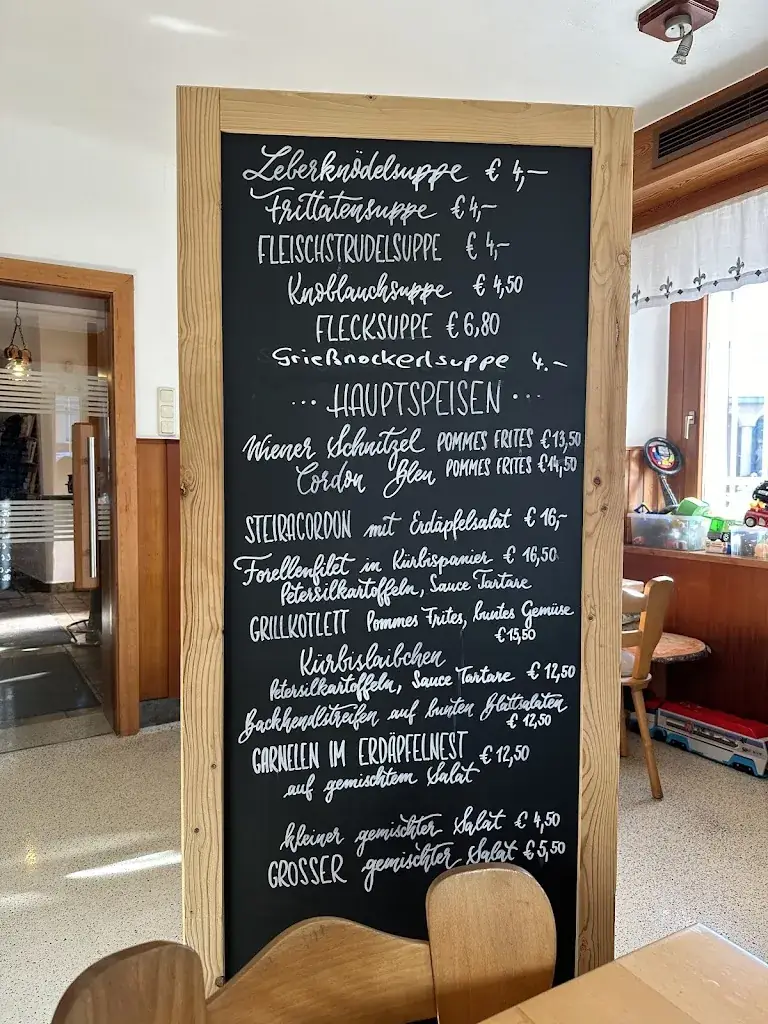 Leberknödelsuppe € 4,–
Frittatensuppe € 4,–
FLEISCHSTRUDELSUPPE € 4,–
Knoblauchsuppe € 4,50
FLECKSUPPE € 6,80
Grießnockerlsuppe 4.–
··· HAUPTSPEISEN ···
Wiener Schnitzel POMMES FRITES € 13,50
Cordon Bleu POMMES FRITES € 14,50
STEIRACORDON mit Erdäpfelsalat € 16,–
Forellenfilet in Kürbispanier € 16,50
Petersilkartoffeln, Sauce Tartare
GRILLKOTLETT Pommes Frites, buntes Gemüse
€ 15,50
Kürbislaibchen
Petersilkartoffeln, Sauce Tartare € 12,50
Backhendlstreifen auf bunten Blattsalaten
€ 12,50
GARNELEN IM ERDÄPFELNEST € 12,50
auf gemischtem Salat
kleiner gemischter Salat € 4,50
GROSSER gemischter Salat € 5,50